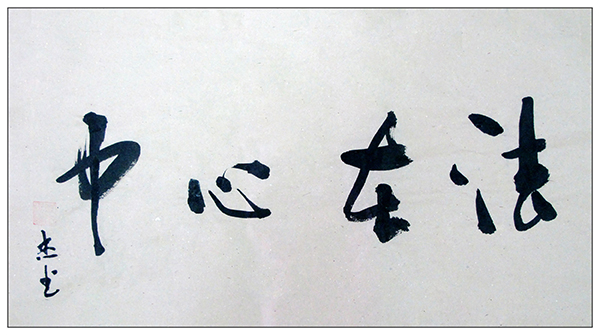 法在心中
杰书